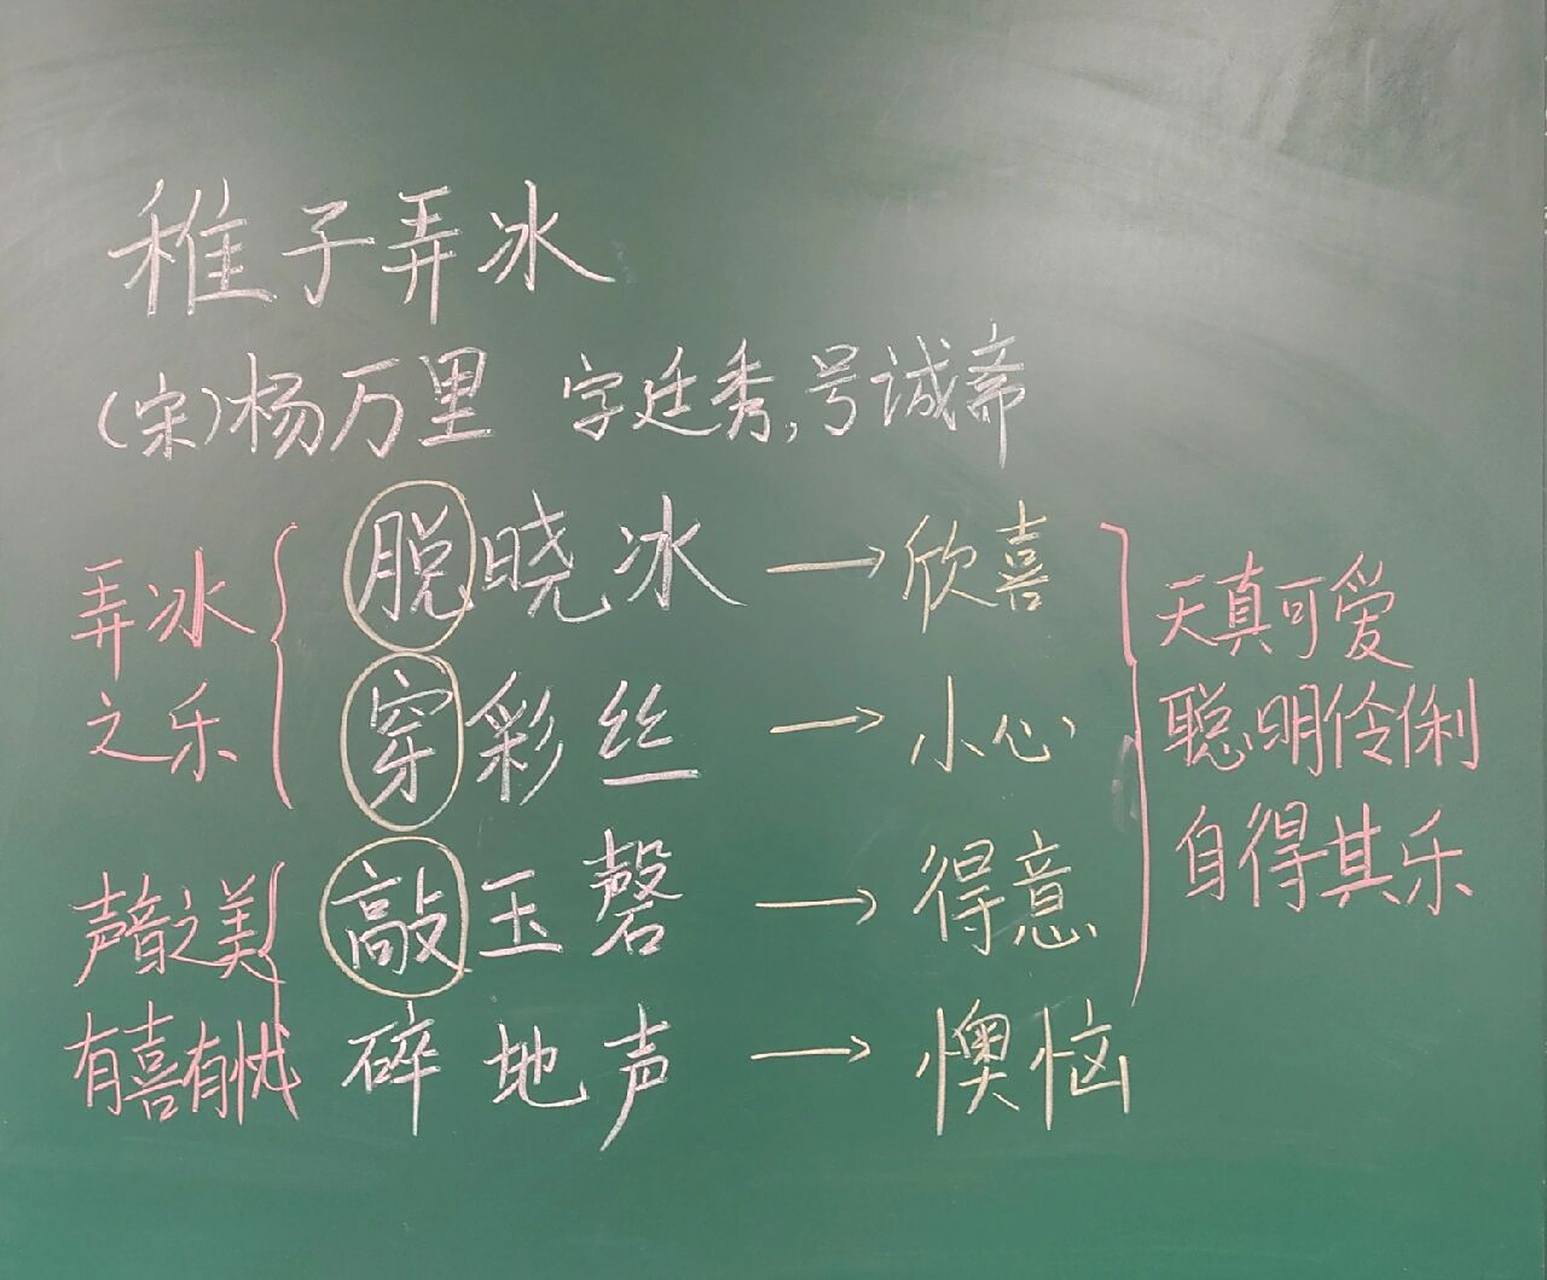 稚子弄冰
(宋)杨万里 字廷秀,号诚斋
弄冰
之乐
脱晓冰→欣喜
穿彩丝→小心
声音之美
有喜有忧
敲玉磬→得意
碎地声→懊恼
天真可爱
聪明伶俐
自得其乐